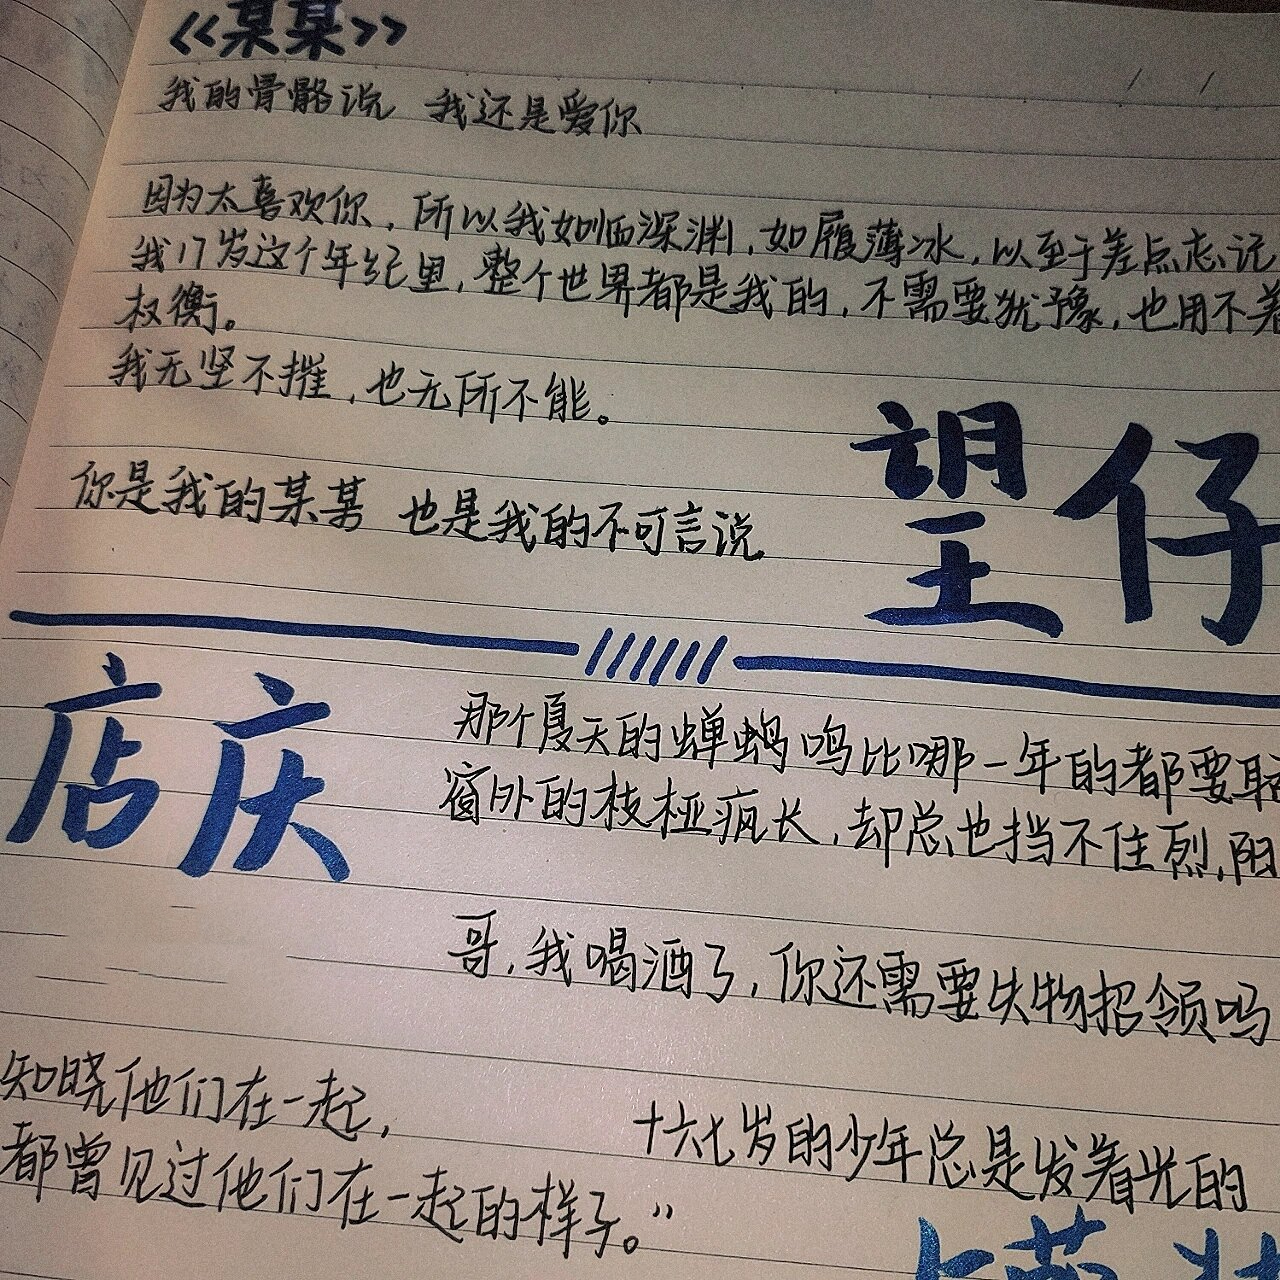 《某某》
我的骨骼说 我还是爱你
因为太喜欢你，所以我如临深渊，如履薄冰，以至于差点忘记
我17岁这个年纪里，整个世界都是我的，不需要犹豫，也用不着
权衡。
我无坚不摧，也无所不能。
望仔
你是我的某某 也是我的不可言说
店庆
那个夏天的蝉鸣比哪一年的都要聒
窗外的枝桠疯长，却总也挡不住烈阳
哥，我喝酒了，你还需要失物招领吗
知晓他们在一起，
十六七岁的少年总是发着光的
都曾见过他们在一起的样子。”